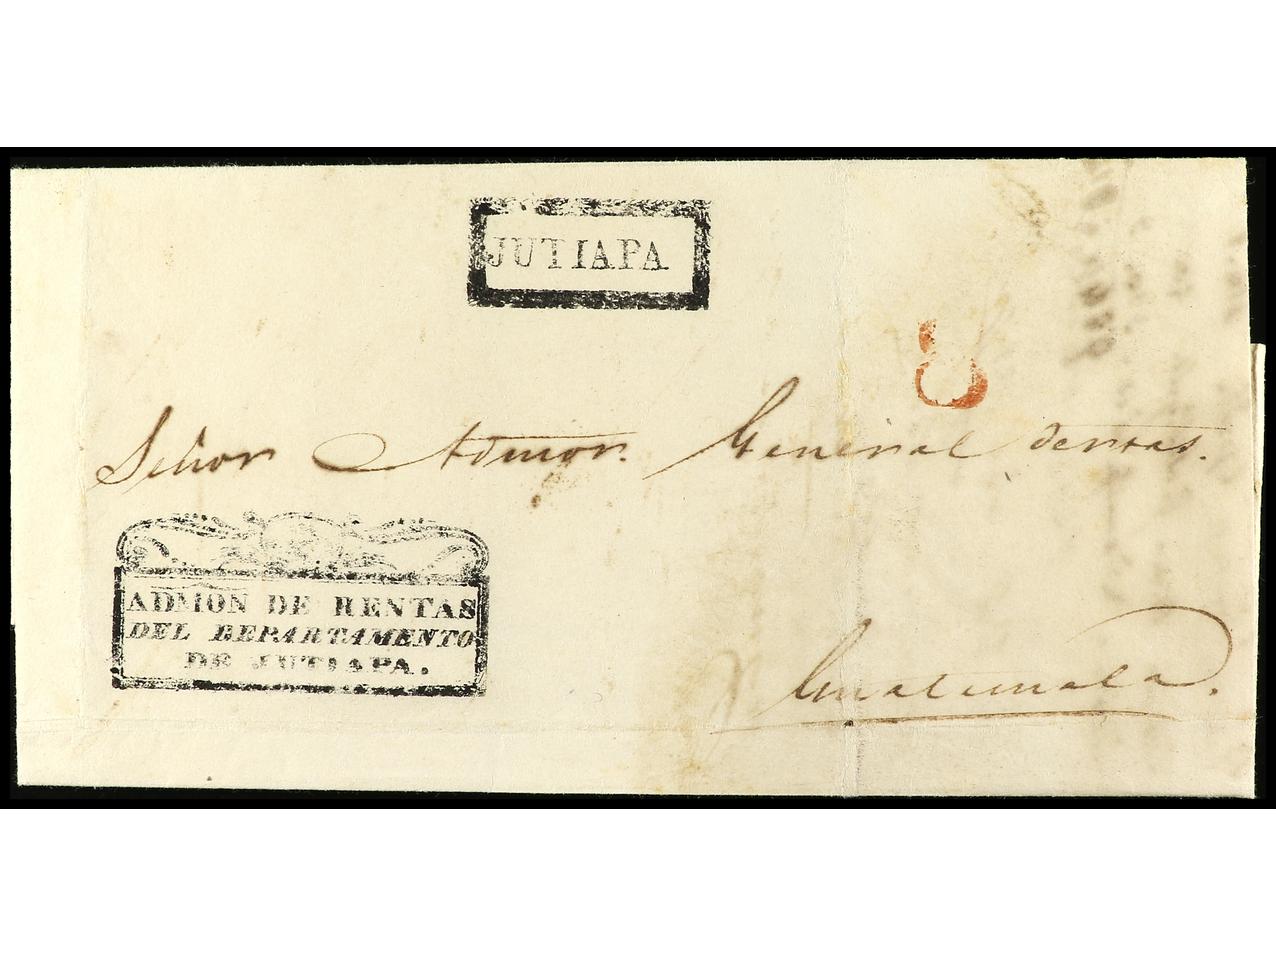 JUTIAPA
8
Señor Admor. General de rentas.
ADMON DE RENTAS
DEL DEPARTAMENTO
DE JUTIAPA.
Guatemala.